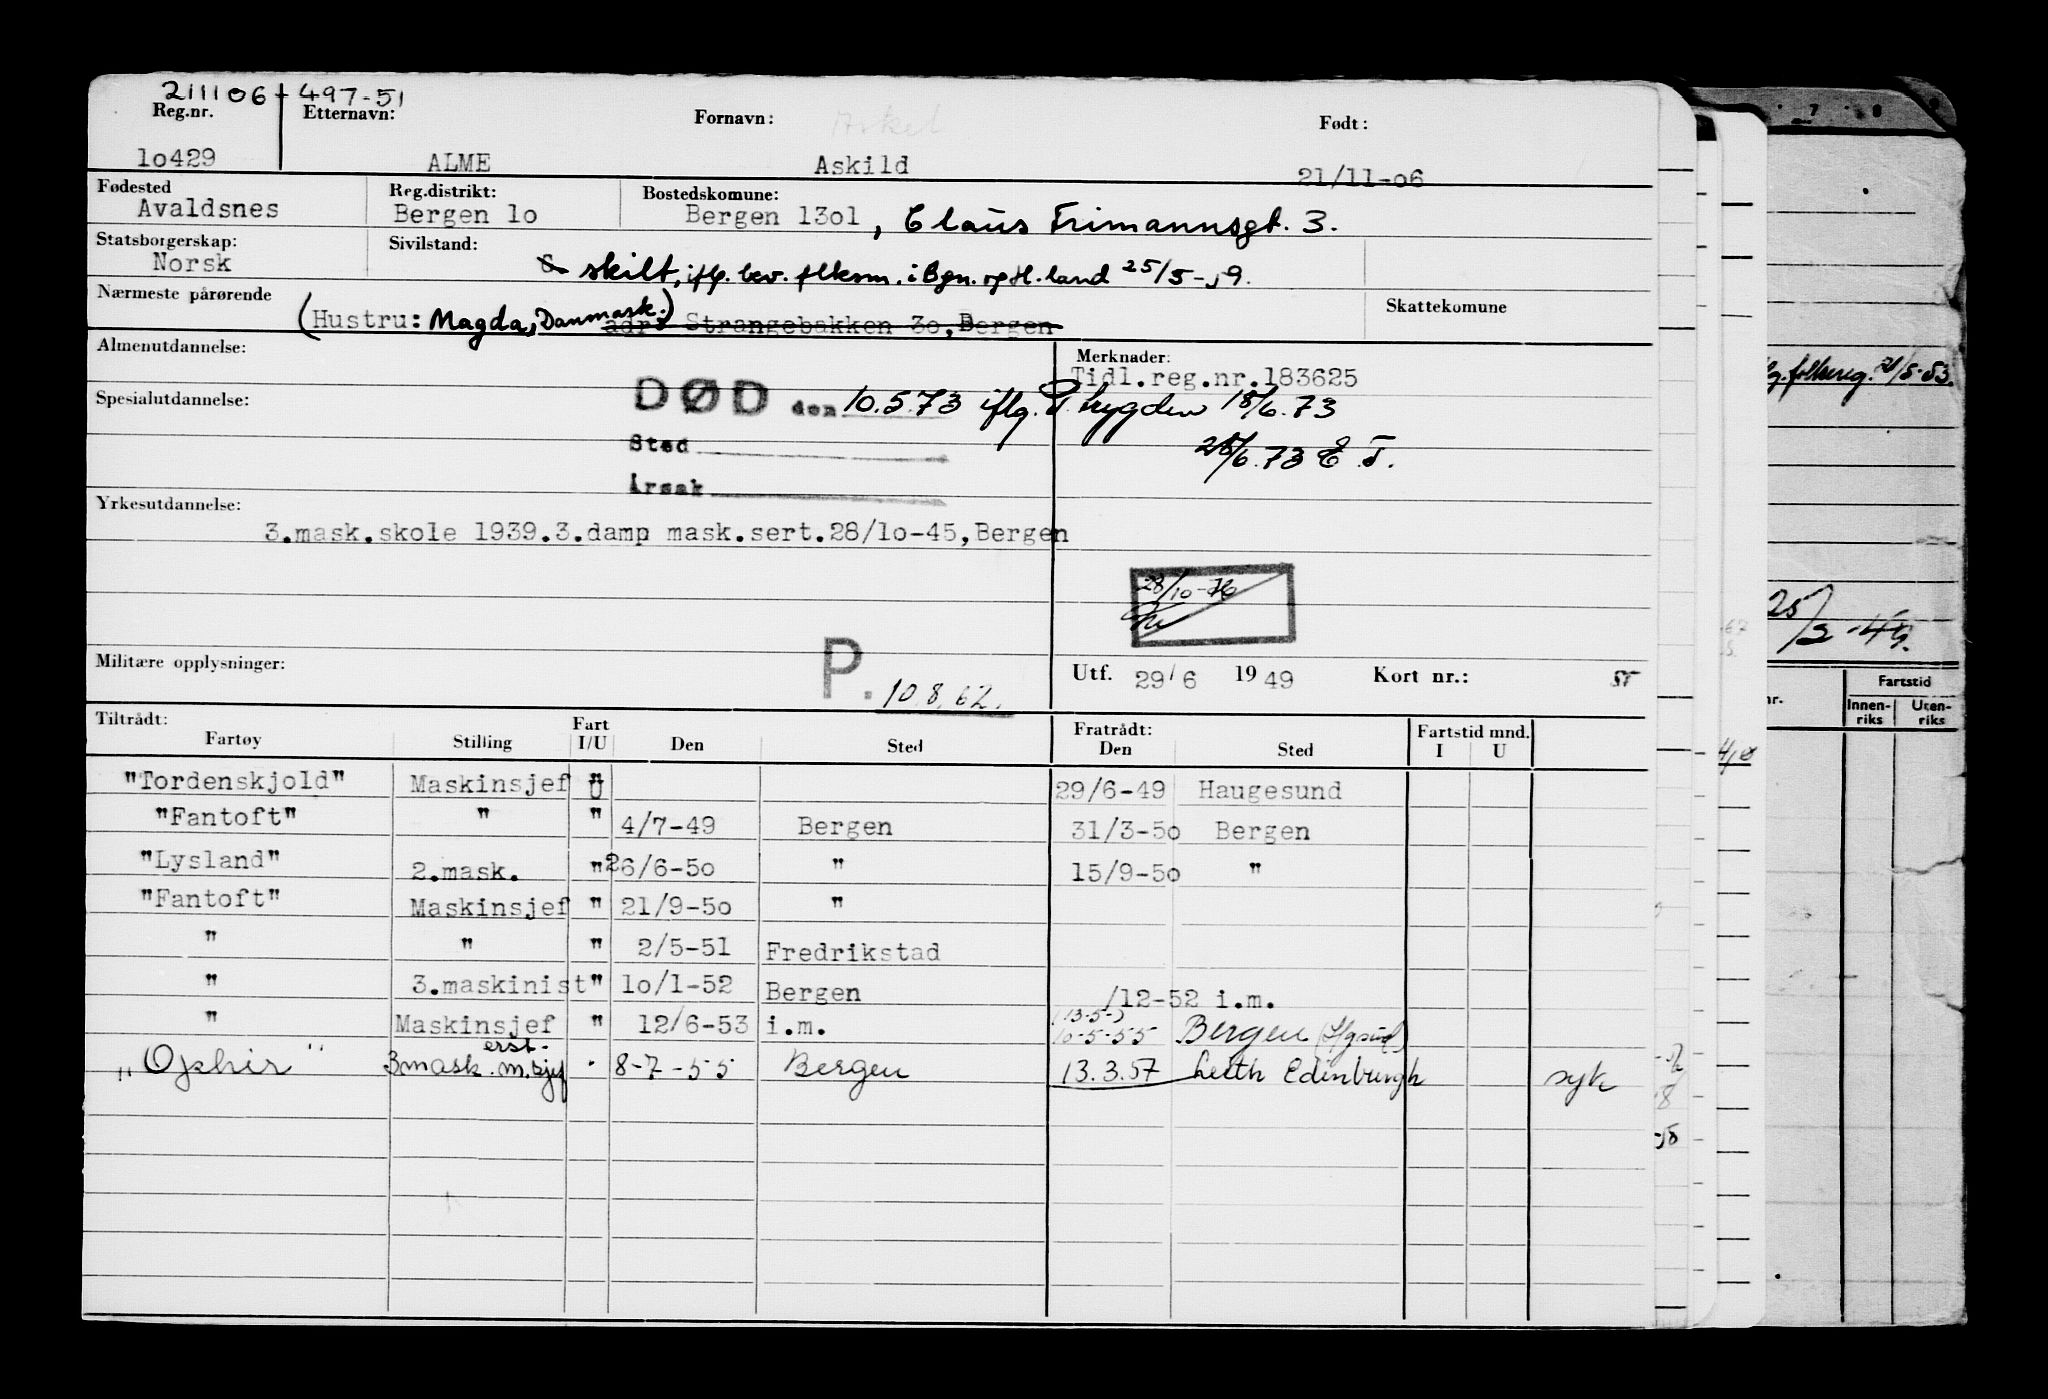 211106 + 497-51
Reg.nr. Etternavn: Fornavn: Askel Født:
lo429 ALME Askild 21/11-o6
Fødested Reg.distrikt: Bostedskomune:
Avaldsnes Bergen lo Bergen 13ol, Claus Frimannsgt. 3.
Statsborgerskap: Sivilstand:
Norsk skilt, iflg. bev. flksm. i Bgn. og H.land 25/5-59.
Nærmeste pårørende Skattekomune
(Hustru: Magda, Danmark.) adr: Strangebakken 3o, Bergen
Almenutdannelse: Merknader:
Tidl.reg.nr.183625
Spesialutdannelse: DØD den 10.5.73 iflg. P. trygden 18/6.73
Sted 25/6.73 E.T.
Årsak
Yrkesutdannelse:
3.mask.skole 1939.3.damp mask.sert.28/lo-45, Bergen
28/10-76
Militære opplysninger: P. 10.8.62. Utf. 29/6 1949 Kort nr.: ST
Tiltrådt: Fratrådt: Fartstid mnd.
Fartøy Stilling Fart I/U Den Sted Den Sted I U
"Tordenskjold" Maskinsjef U 29/6-49 Haugesund
"Fantoft" " " 4/7-49 Bergen 31/3-5o Bergen
"Lysland" 2.mask. " 26/6-5o " 15/9-5o "
"Fantoft" Maskinsjef " 21/9-5o "
" " " 2/5-51 Fredrikstad
" 3.maskinist " lo/1-52 Bergen /12-52 i.m.
" Maskinsjef " 12/6-53 i.m. (13-5-) 10-5-55 Bergen (Hgsund)
"Ophir" 3mask. erst. m.sjef " 8-7-55 Bergen 13.3.57 Leith Edinburgh syk
7 8 9
folkereg. 21/5-53.
25/3-49.
nr. Fartstid
Innen-riks Uten-riks